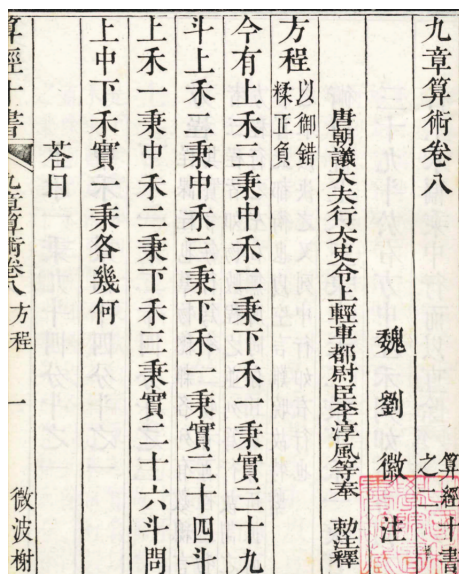 九章算術卷八
算經十書
之二
魏 劉 徽 注
唐朝議大夫行太史令上輕車都尉臣李淳風等奉 勅注釋
方程以御錯糅正負
今有上禾三秉中禾二秉下禾一秉實三十九
斗上禾二秉中禾三秉下禾一秉實三十四斗
上禾一秉中禾二秉下禾三秉實二十六斗問
上中下禾實一秉各幾何
荅曰
算經十書 九章算術卷八 方程 一 微波榭